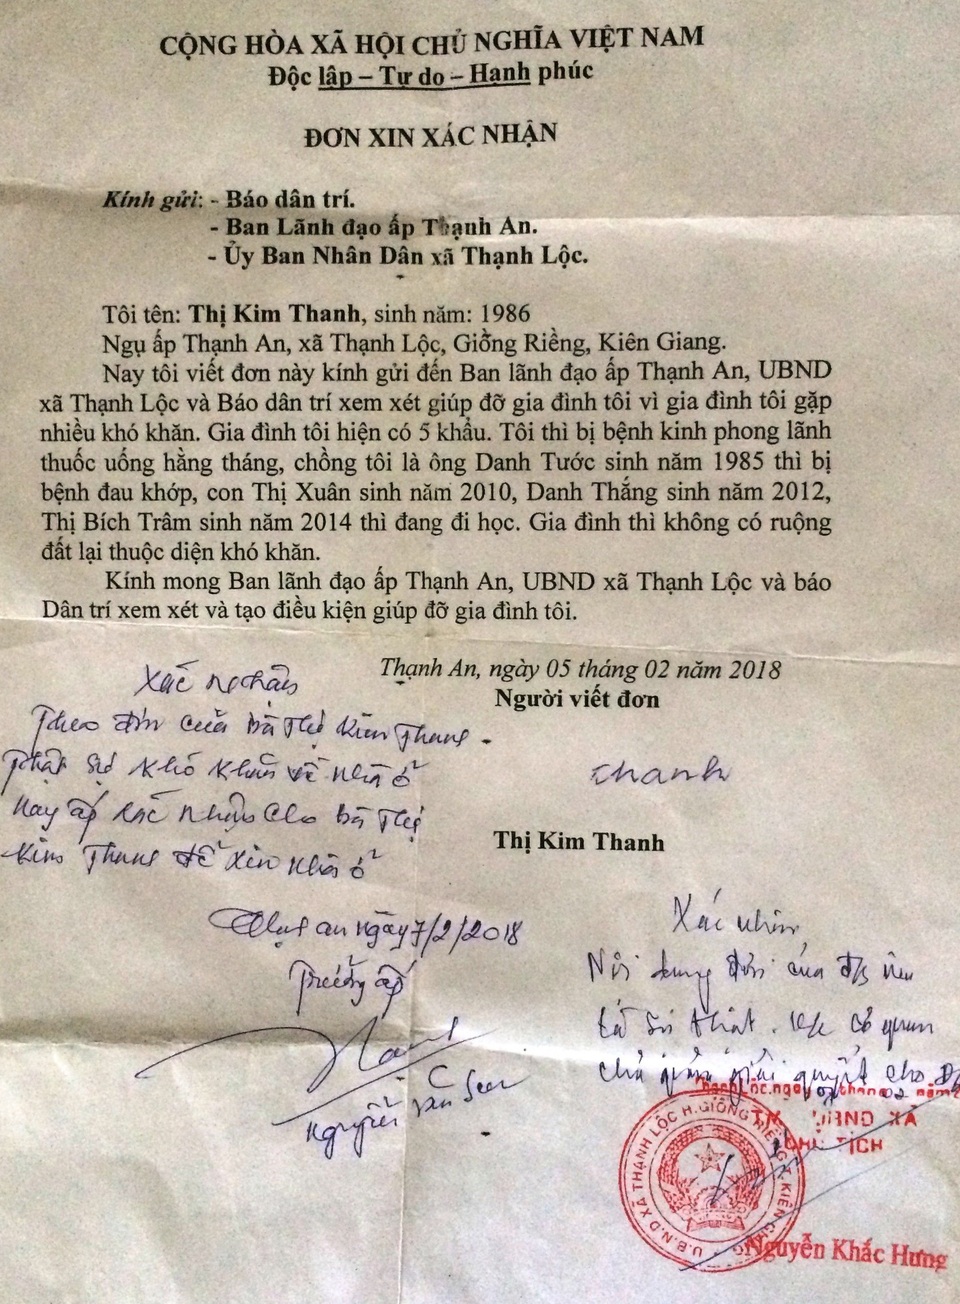 CỘNG HÒA XÃ HỘI CHỦ NGHĨA VIỆT NAM
Độc lập – Tự do – Hạnh phúc
ĐƠN XIN XÁC NHẬN
Kính gửi: - Báo dân trí.
- Ban Lãnh đạo ấp Thạnh An.
- Ủy Ban Nhân Dân xã Thạnh Lộc.
Tôi tên: Thị Kim Thanh, sinh năm: 1986
Ngụ ấp Thạnh An, xã Thạnh Lộc, Giồng Riềng, Kiên Giang.
Nay tôi viết đơn này kính gửi đến Ban lãnh đạo ấp Thạnh An, UBND
xã Thạnh Lộc và Báo dân trí xem xét giúp đỡ gia đình tôi vì gia đình tôi gặp
nhiều khó khăn. Gia đình tôi hiện có 5 khẩu. Tôi thì bị bệnh kinh phong lãnh
thuốc uống hằng tháng, chồng tôi là ông Danh Tước sinh năm 1985 thì bị
bệnh đau khớp, con Thị Xuân sinh năm 2010, Danh Thắng sinh năm 2012,
Thị Bích Trâm sinh năm 2014 thì đang đi học. Gia đình thì không có ruộng
đất lại thuộc diện khó khăn.
Kính mong Ban lãnh đạo ấp Thạnh An, UBND xã Thạnh Lộc và báo
Dân trí xem xét và tạo điều kiện giúp đỡ gia đình tôi.
Thạnh An, ngày 05 tháng 02 năm 2018
Người viết đơn
Thanh
Thị Kim Thanh
Xác nhận
Theo đơn của bà Thị Kim Thanh
thật sự khó khăn về nhà ở
nay ấp xác nhận cho bà Thị
Kim Thanh để xin nhà ở
Thạnh an ngày 7/2/2018
Trưởng ấp
Nguyễn Văn
Xác nhận
Nội dung đơn của nêu
là sự thật. cơ quan
chủ quản giải quyết cho
Thạnh Lộc, ngày 07 tháng 02 năm
TM. UBND XÃ
CHỦ TỊCH
U.B.N.D XÃ THẠNH LỘC H.GIỒNG RIỀNG T.KIÊN GIANG
Nguyễn Khắc Hưng